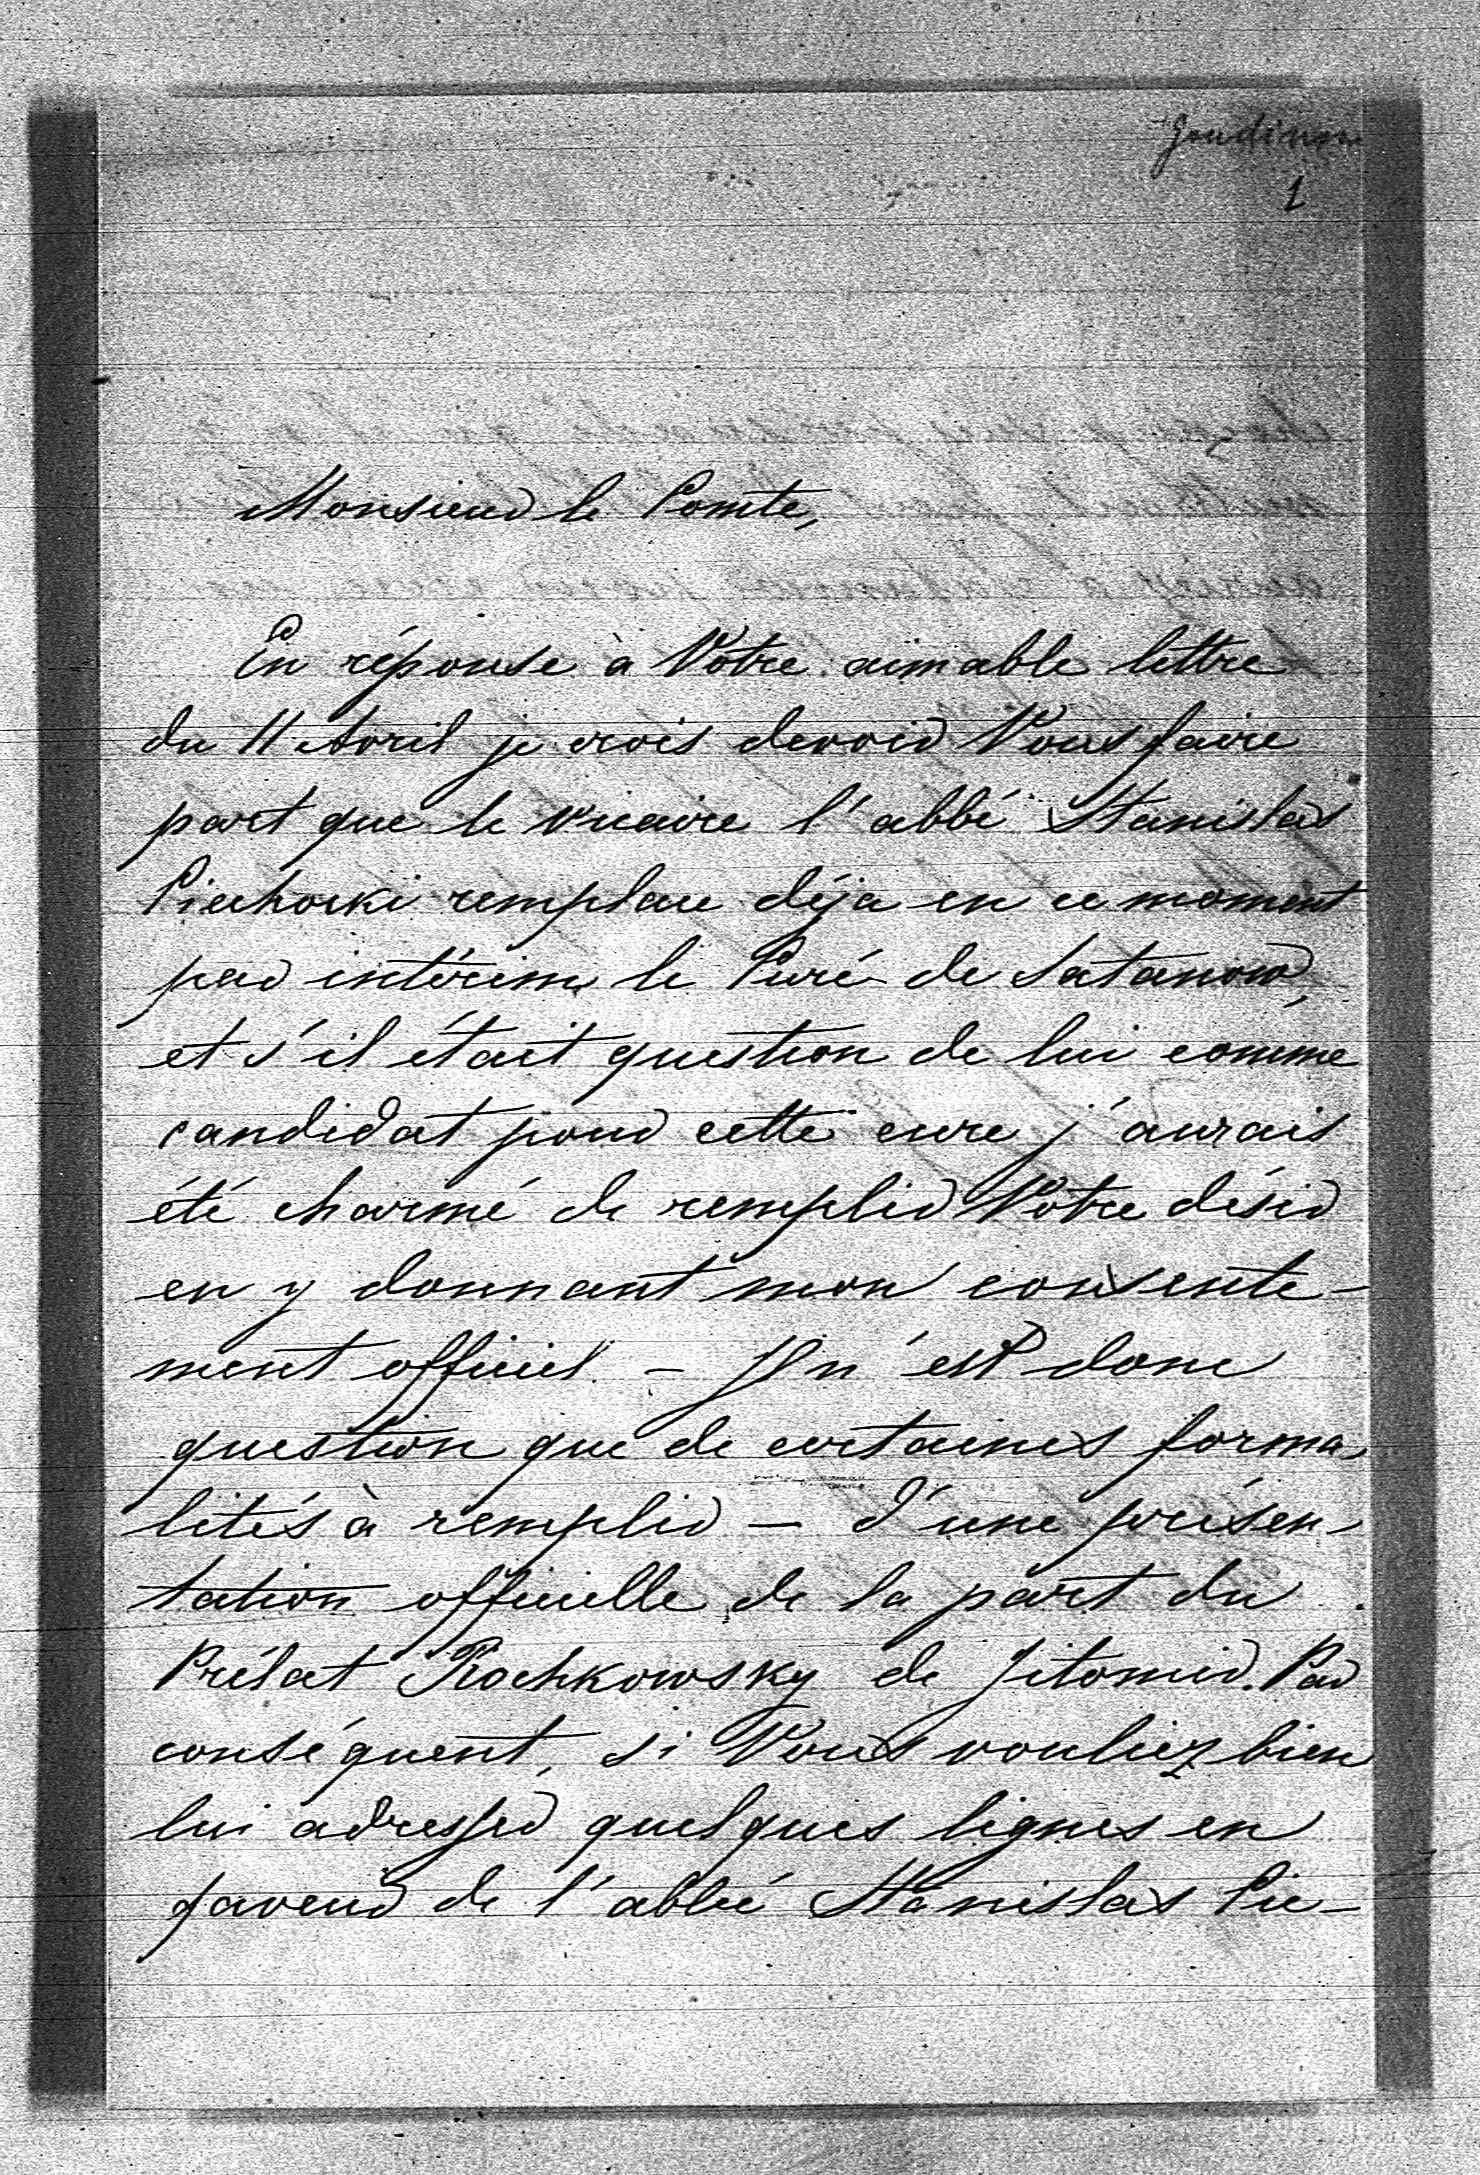 1
Monsieur le Comte,
En réponse à Votre aimable lettre
du 11 Avril je crois devoir Vous faire
part que le vicaire l'abbé Stanislas
Piechocki remplace déja en ce moment
par intérim le Curé de Satanow,
et s'il était question de lui comme
candidat pour cette cure j'aurais
été charmé de remplir Votre désir
en y donnant mon consente-
ment officiel. – Il n'est donc
question que de certaines forma-
lités à remplir – d'une présen-
tation officielle de la part du
Prélat Rochkowsky de Jitomir. Par
conséquent, si Vous vouliez bien
lui adresser quelques lignes en
faveur de l'abbé Stanislas Pie-